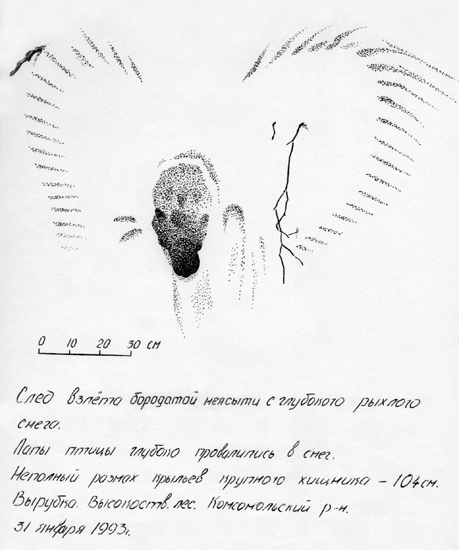 0 10 20 30 см
След взлёта бородатой неясыти с глубокого рыхлого
снега.
Лапы птицы глубоко провалились в снег.
Неполный размах крыльев крупного хищника – 104 см.
Вырубка. Высокоств. лес. Комсомольский р-н.
31 января 1993г.